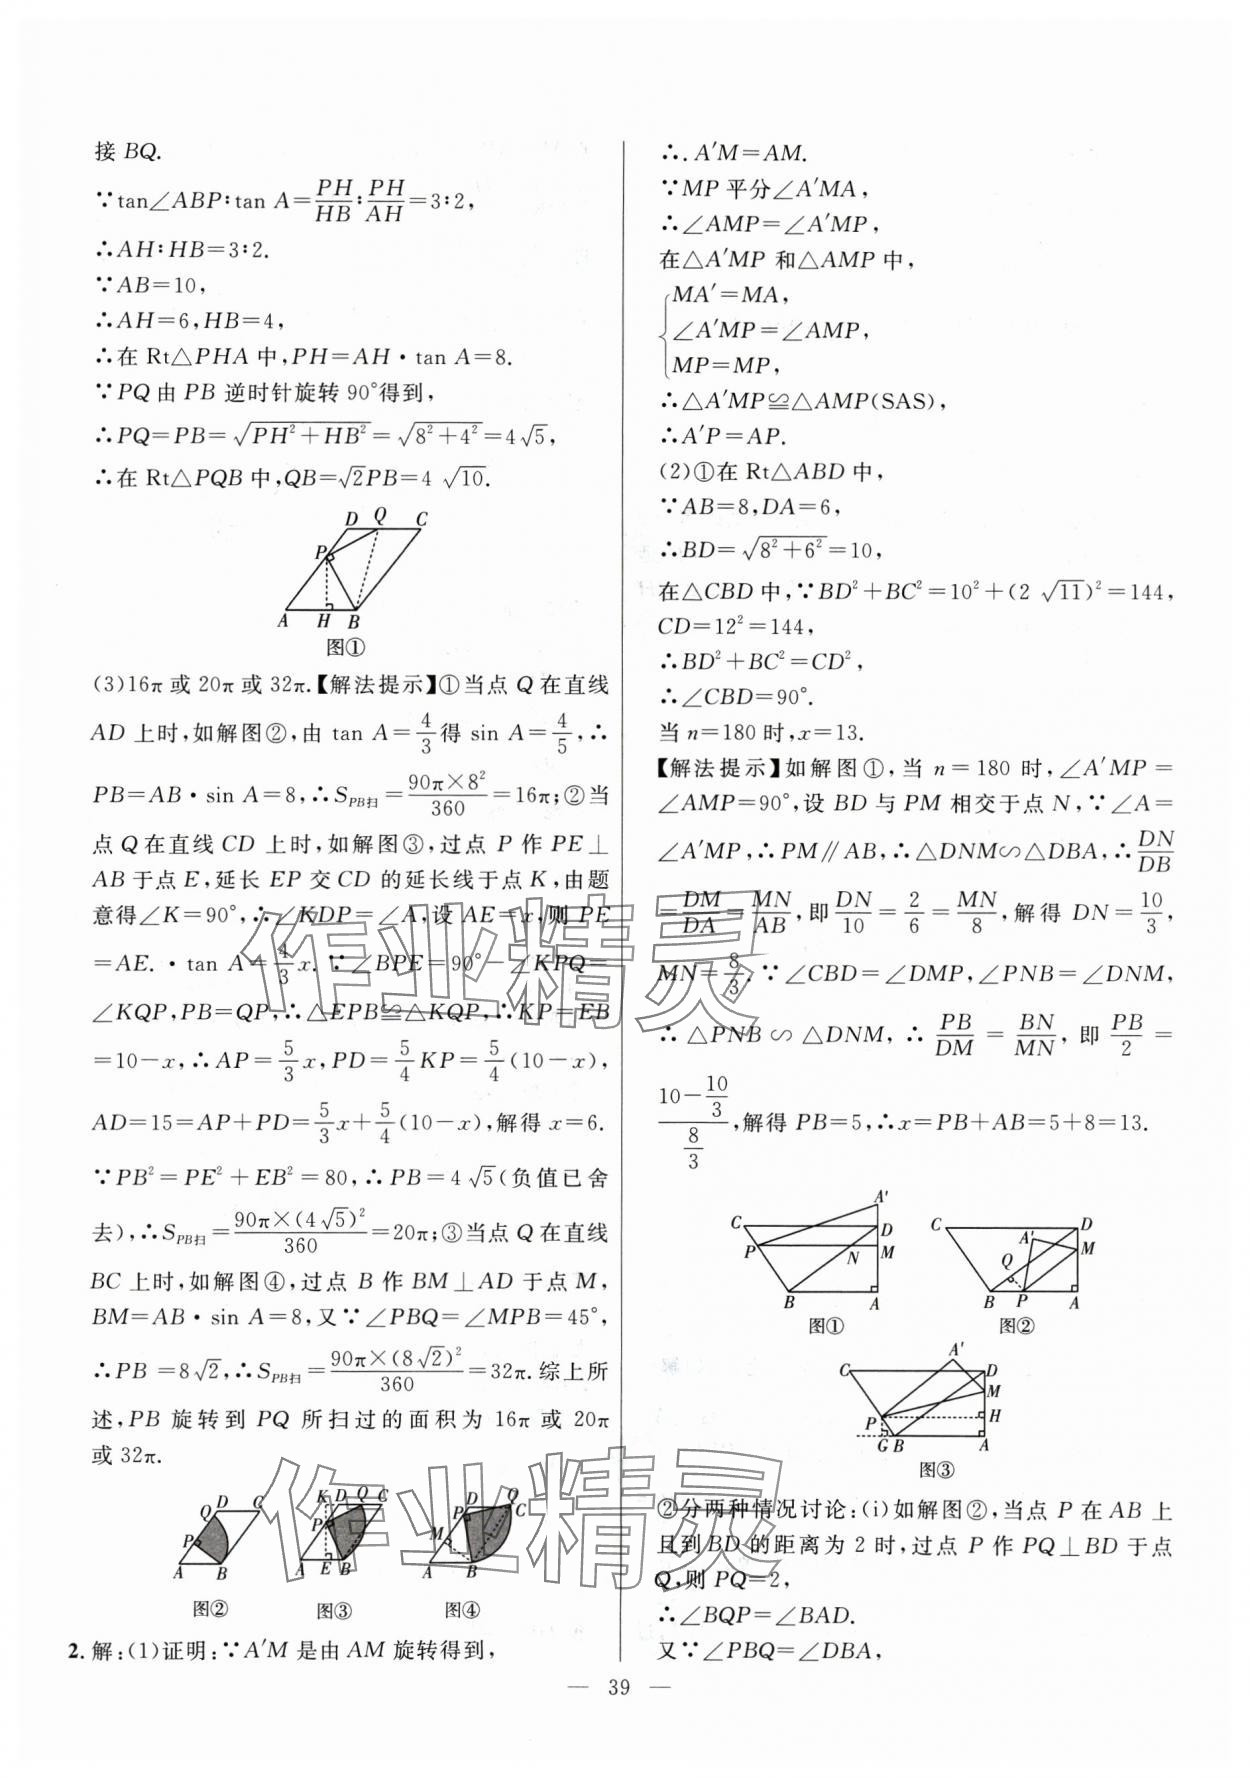 接 BQ.
∵tan∠ABP∶tan A=PH/HB∶PH/AH=3∶2,
∴AH∶HB=3∶2.
∵AB=10,
∴AH=6,HB=4,
∴在 Rt△PHA 中,PH=AH·tan A=8.
∵PQ 由 PB 逆时针旋转 90°得到,
∴PQ=PB=√(PH²+HB²)=√(8²+4²)=4√5,
∴在 Rt△PQB 中,QB=√2PB=4 √10.
D Q C
P
A H B
图①
(3)16π 或 20π 或 32π.【解法提示】①当点 Q 在直线
AD 上时,如解图②,由 tan A=4/3得 sin A=4/5,∴
PB=AB·sin A=8,∴S_PB扫=90π×8²/360=16π;②当
点 Q 在直线 CD 上时,如解图③,过点 P 作 PE⊥
AB 于点 E,延长 EP 交 CD 的延长线于点 K,由题
意得∠K=90°,∴∠KDP=∠A,设 AE=x,则 PE
=AE.·tan A=4/3x.∵∠BPE=90°-∠KPQ=
∠KQP,PB=QP,∴△EPB≌△KQP,∴KP=EB
=10-x,∴AP=5/3x,PD=5/4KP=5/4(10-x),
AD=15=AP+PD=5/3x+5/4(10-x),解得 x=6.
∵PB²=PE²+EB²=80,∴PB=4√5(负值已舍
去),∴S_PB扫=90π×(4√5)²/360=20π;③当点 Q 在直线
BC 上时,如解图④,过点 B 作 BM⊥AD 于点 M,
BM=AB·sin A=8,又∵∠PBQ=∠MPB=45°,
∴PB=8√2,∴S_PB扫=90π×(8√2)²/360=32π.综上所
述,PB 旋转到 PQ 所扫过的面积为 16π 或 20π
或 32π.
Q D C
P
A B
图②
K D Q C
P
A E B
图③
D Q
P C
M
A B
图④
2. 解:(1)证明:∵A′M 是由 AM 旋转得到,
∴.A′M=AM.
∵MP 平分∠A′MA,
∴∠AMP=∠A′MP,
在△A′MP 和△AMP 中,
MA′=MA,
∠A′MP=∠AMP,
MP=MP,
∴△A′MP≌△AMP(SAS),
∴A′P=AP.
(2)①在 Rt△ABD 中,
∵AB=8,DA=6,
∴BD=√(8²+6²)=10,
在△CBD 中,∵BD²+BC²=10²+(2 √11)²=144,
CD=12²=144,
∴BD²+BC²=CD²,
∴∠CBD=90°.
当 n=180 时,x=13.
【解法提示】如解图①,当 n=180 时,∠A′MP=
∠AMP=90°,设 BD 与 PM 相交于点 N,∵∠A=
∠A′MP,∴PM∥AB,∴△DNM∽△DBA,∴DN/DB
=DM/DA=MN/AB,即DN/10=2/6=MN/8,解得 DN=10/3,
MN=8/3.∵∠CBD=∠DMP,∠PNB=∠DNM,
∴△PNB∽△DNM,∴PB/DM=BN/MN,即PB/2=
(10-10/3)/(8/3),解得 PB=5,∴x=PB+AB=5+8=13.
A′
C D
P N M
B A
图①
C D
A′ M
Q
B P A
图②
A′
C D
M
P H
G B A
图③
②分两种情况讨论:(i)如解图②,当点 P 在 AB 上
且到 BD 的距离为 2 时,过点 P 作 PQ⊥BD 于点
Q,则 PQ=2,
∴∠BQP=∠BAD.
又∵∠PBQ=∠DBA,
— 39 —
作业精灵
作业精灵